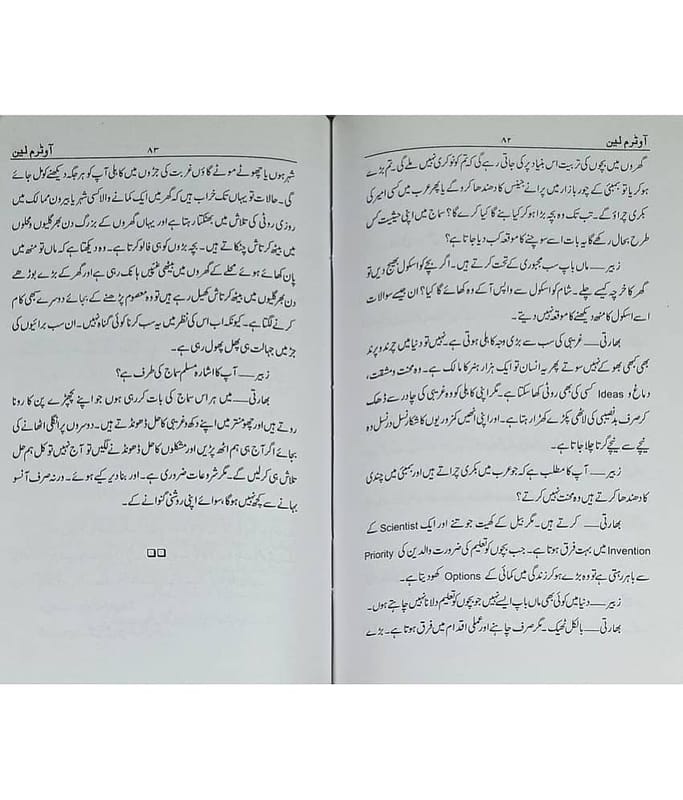 آوٹرم لین ۸۲
گھروں میں بچوں کی تربیت اس بنیاد پر کی جاتی رہے گی کہ تم کو نوکری نہیں ملے گی۔ تم بڑے
ہو کر یا تو بمبئی کے چور بازار میں پرانے جینس کا دھندھا کرو گے یا پھر عرب میں کسی امیر کی
بکری چراؤ گے۔ تب تک وہ بچہ بڑا ہو کر کیا بنے گا کیا کرے گا؟ سماج میں اپنی حیثیت کس
طرح بحال رکھے گا یہ بات اسے سوچنے کا موقعہ کب دیا جاتا ہے؟
زبیر__ ماں باپ سب مجبوری کے تحت کرتے ہیں۔ اگر بچے کو اسکول بھیج دیں تو
گھر کا خرچہ کیسے چلے۔ شام کو اسکول سے واپس آ کے وہ کھائے گا کیا؟ ان جیسے سوالات
اسے اسکول کا منھ دیکھنے کا موقعہ نہیں دیتے۔
بھارتی__ غریبی کی سب سے بڑی وجہ کاہلی ہوتی ہے نہیں تو دنیا میں چرند و پرند
بھی کبھی بھوکے نہیں سوتے پھر یہ انسان تو ایک ہزار ہنر کا مالک ہے۔ وہ محنت و مشقت،
دماغ و Ideas کسی کی بھی روٹی کھا سکتا ہے۔ مگر اپنی کاہلی کو وہ غریبی کی چادر سے ڈھک
کر صرف بدنصیبی کی لاٹھی پکڑے کھڑا رہتا ہے۔ اور اپنی انھیں کمزوریوں کا شکار نسل در نسل وہ
نیچے سے نیچے گرتا چلا جاتا ہے۔
زبیر__ آپ کا مطلب ہے کہ جو عرب میں بکری چراتے ہیں اور بمبئی میں چندی
کا دھندھا کرتے ہیں وہ محنت نہیں کرتے؟
بھارتی__ کرتے ہیں۔ مگر بیل کے کھیت جوتنے اور ایک Scientist کے
Invention میں بہت فرق ہوتا ہے۔ جب بچوں کو تعلیم کی ضرورت والدین کی Priority
سے باہر رہتی ہے تو وہ بڑے ہو کر زندگی میں کمائی کے Options کھو دیتا ہے۔
زبیر__ دنیا میں کوئی بھی ماں باپ ایسے نہیں جو بچوں کو تعلیم دلانا نہیں چاہتے ہوں۔
بھارتی__ بالکل ٹھیک۔ مگر صرف چاہنے اور عملی اقدام میں فرق ہوتا ہے۔ بڑے
۸۳ آوٹرم لین
شہر ہوں یا چھوٹے موٹے گاؤں غربت کی جڑوں میں کاہلی آپ کو ہر جگہ دیکھنے کو مل جائے
گی۔ حالات تو یہاں تک خراب ہیں کہ گھر میں ایک کمانے والا کسی شہر یا بیرون ممالک میں
روزی روٹی کی تلاش میں بھٹکتا رہتا ہے اور یہاں گھروں کے بزرگ دن بھر گلیوں و محلوں
میں بیٹھ کر تاش چٹکاتے ہیں۔ بچہ بڑوں کو ہی فالو کرتا ہے۔ وہ دیکھتا ہے کہ ماں تو منھ میں
پان کھاتے ہوئے محلے کے گھروں میں بیٹھی گپیں ہانک رہی ہے اور گھر کے بڑے بوڑھے
دن بھر گلیوں میں بیٹھ کر تاش کھیل رہے ہیں تو وہ معصوم پڑھنے کے بجائے دوسرے بھی کام
کرنے لگتا ہے۔ کیونکہ اب اس کی نظر میں یہ سب کرنا کوئی گناہ نہیں۔ ان سب برائیوں کی
جڑ میں جہالت ہی پھل پھول رہی ہے۔
زبیر__ آپ کا اشارہ مسلم سماج کی طرف ہے؟
بھارتی__ میں ہر اس سماج کی بات کر رہی ہوں جو اپنے پچھڑے پن کا رونا
روتے ہیں اور چھو منتر میں اپنے دکھ و غریبی کا حل ڈھونڈتے ہیں۔ دوسروں پر انگلی اٹھانے کی
بجائے اگر آج ہی ہم اٹھ پڑیں اور مشکلوں کا حل ڈھونڈنے لگیں تو آج نہیں تو کل ہم حل
تلاش ہی کر لیں گے۔ مگر شروعات ضروری ہے۔ اور بنا دیر کیے ہوئے۔ ورنہ صرف آنسو
بہانے سے کچھ نہیں ہوگا، سوائے اپنی روشنی گنوانے کے۔